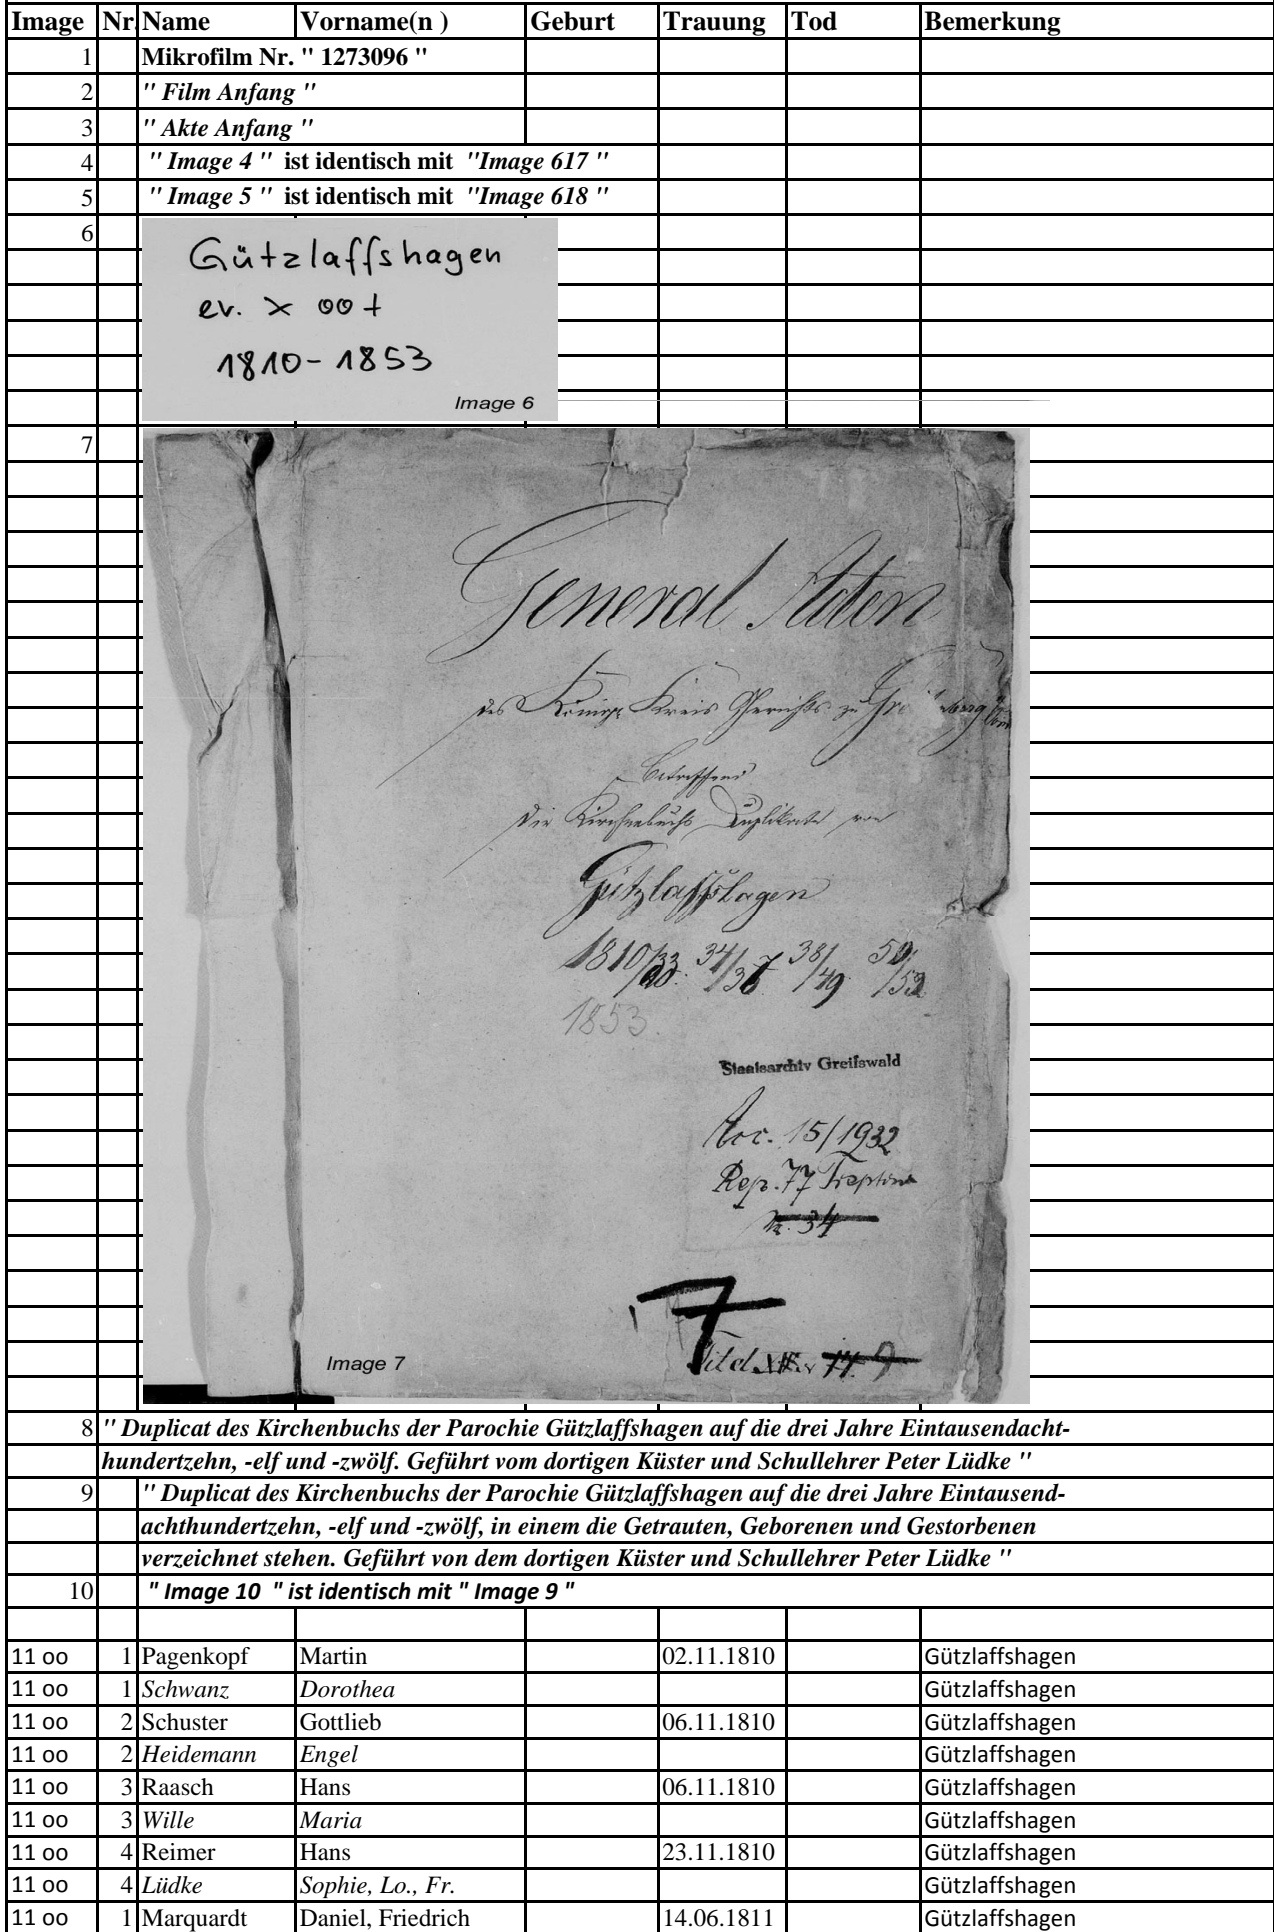 Image Nr. Name Vorname(n ) Geburt Trauung Tod Bemerkung
1 Mikrofilm Nr. " 1273096 "
2 " Film Anfang "
3 " Akte Anfang "
4 " Image 4 " ist identisch mit "Image 617 "
5 " Image 5 " ist identisch mit "Image 618 "
6
Gützlaffshagen
ev. × oo +
1810-1853
Image 6
7
General Acten
des Königl Kreis Gerichts zu
Betreffend
die Kirchenbuchs Duplikate von
Gützlaffshagen
1810/33 34/37 38/49 50/53
1853.
Staatsarchiv Greifswald
Acc. 15/1932
Rep. 77 Treptow
Nr. 34
7
Titel
Image 7
8 " Duplicat des Kirchenbuchs der Parochie Gützlaffshagen auf die drei Jahre Eintausendacht-
hundertzehn, -elf und -zwölf. Geführt vom dortigen Küster und Schullehrer Peter Lüdke "
9 " Duplicat des Kirchenbuchs der Parochie Gützlaffshagen auf die drei Jahre Eintausend-
achthundertzehn, -elf und -zwölf, in einem die Getrauten, Geborenen und Gestorbenen
verzeichnet stehen. Geführt von dem dortigen Küster und Schullehrer Peter Lüdke "
10 " Image 10 " ist identisch mit " Image 9 "
11 oo 1 Pagenkopf Martin 02.11.1810 Gützlaffshagen
11 oo 1 Schwanz Dorothea Gützlaffshagen
11 oo 2 Schuster Gottlieb 06.11.1810 Gützlaffshagen
11 oo 2 Heidemann Engel Gützlaffshagen
11 oo 3 Raasch Hans 06.11.1810 Gützlaffshagen
11 oo 3 Wille Maria Gützlaffshagen
11 oo 4 Reimer Hans 23.11.1810 Gützlaffshagen
11 oo 4 Lüdke Sophie, Lo., Fr. Gützlaffshagen
11 oo 1 Marquardt Daniel, Friedrich 14.06.1811 Gützlaffshagen